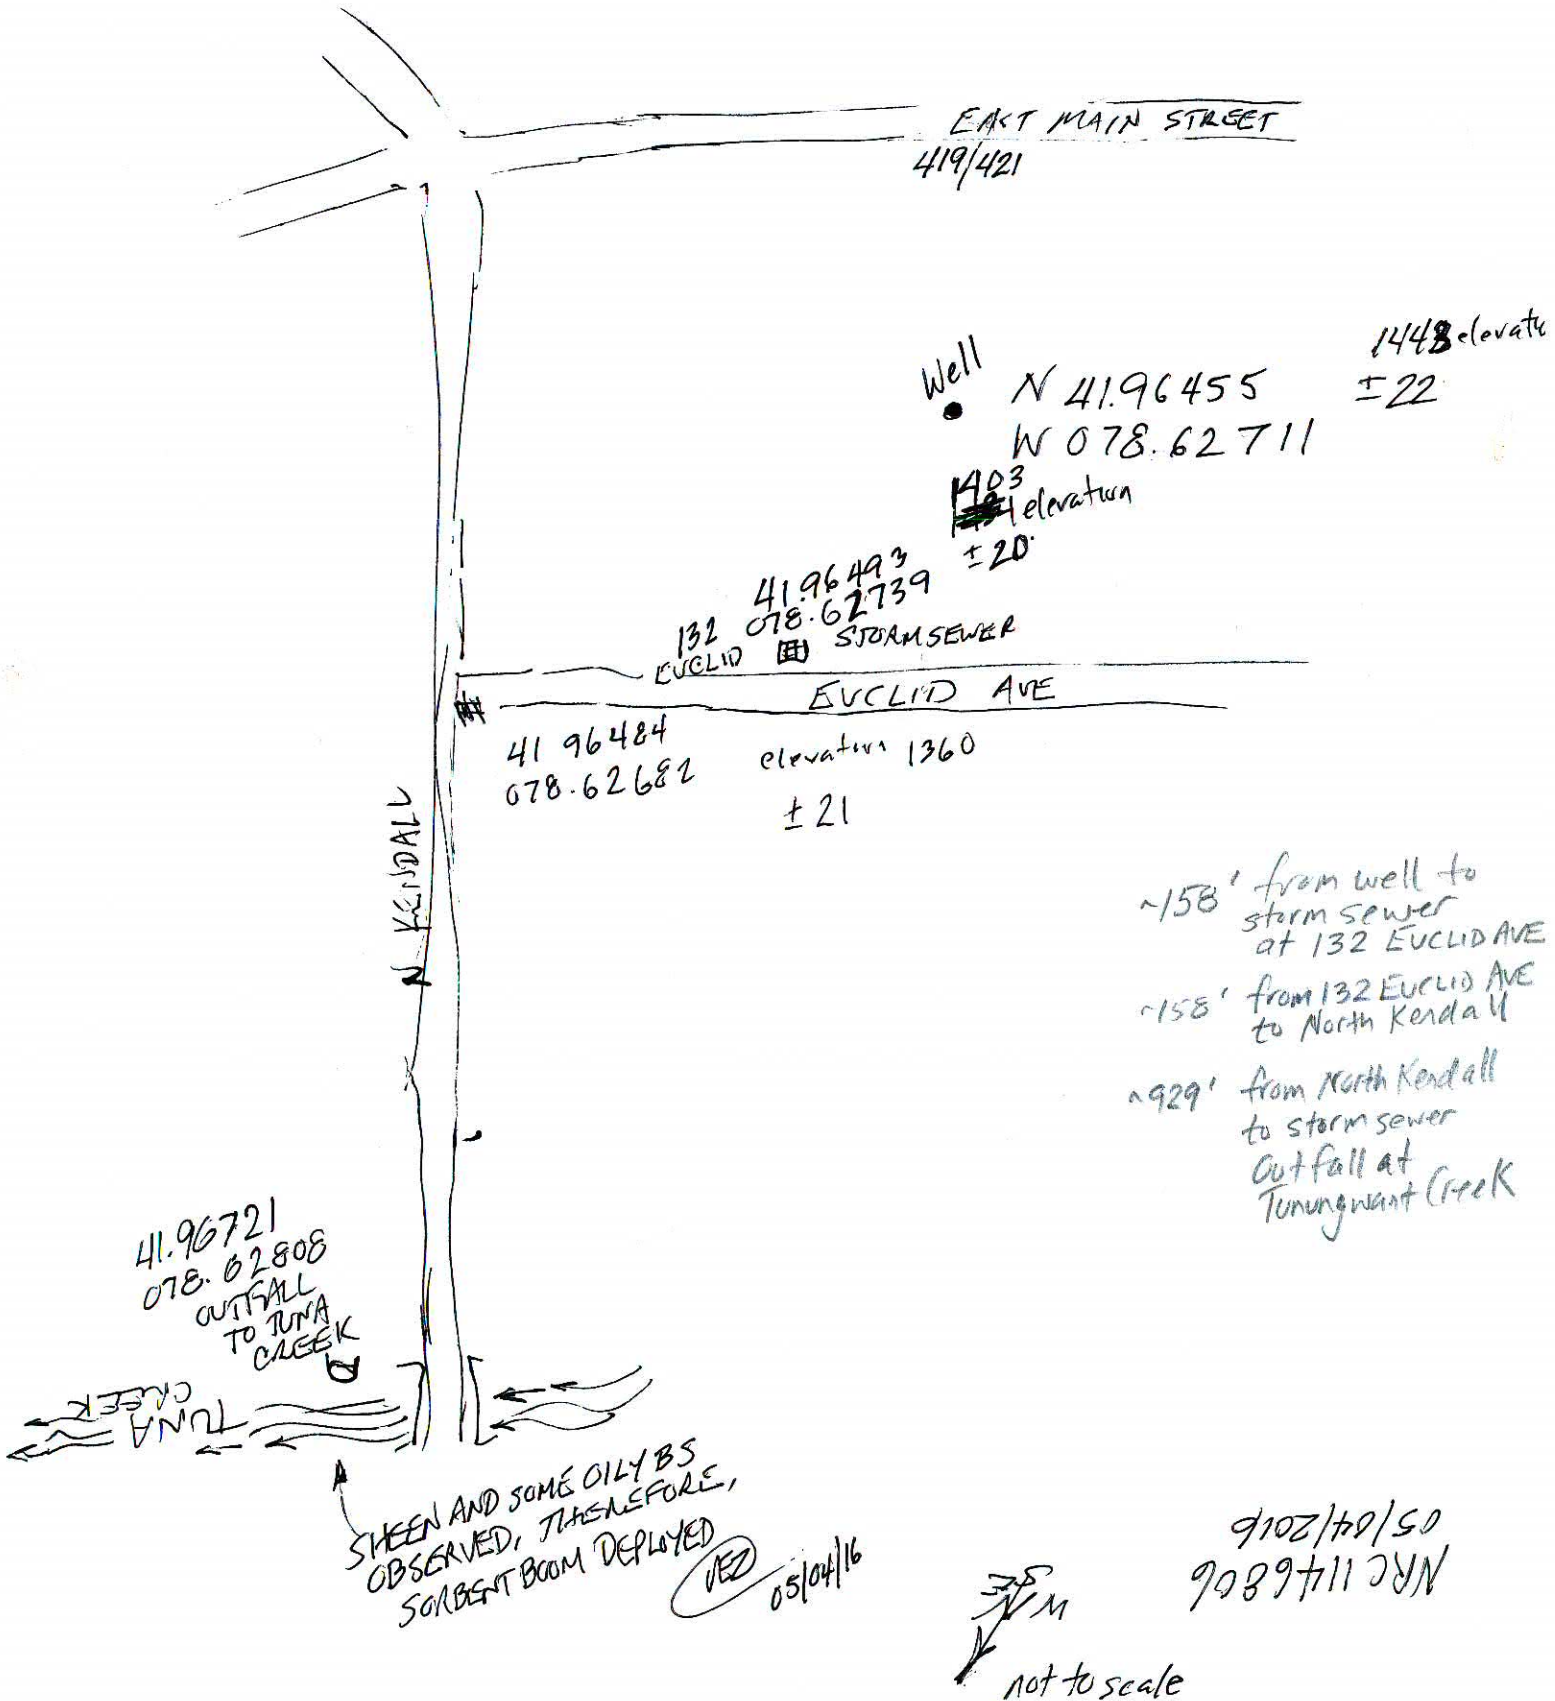 EAST MAIN STREET
419/421
Well
N 41.96455
W 078.62711
1448 elevate
±22
1403
elevation
±20
41.96493
078.62739
132
EUCLID
STORM SEWER
EUCLID AVE
41 96484
078.62682
elevation 1360
±21
N KENDALL
~158' from well to
storm sewer
at 132 EUCLID AVE
~158' from 132 EUCLID AVE
to North Kendall
~929' from North Kendall
to storm sewer
Outfall at
Tunungwant Creek
41.96721
078.62808
OUTFALL
TO TUNA
CREEK
TUNA
CREEK
SHEEN AND SOME OILY BS
OBSERVED, THEREFORE,
SORBENT BOOM DEPLOYED
05/04/16
NRC 1146806
05/04/2016
N
E
S
W
not to scale